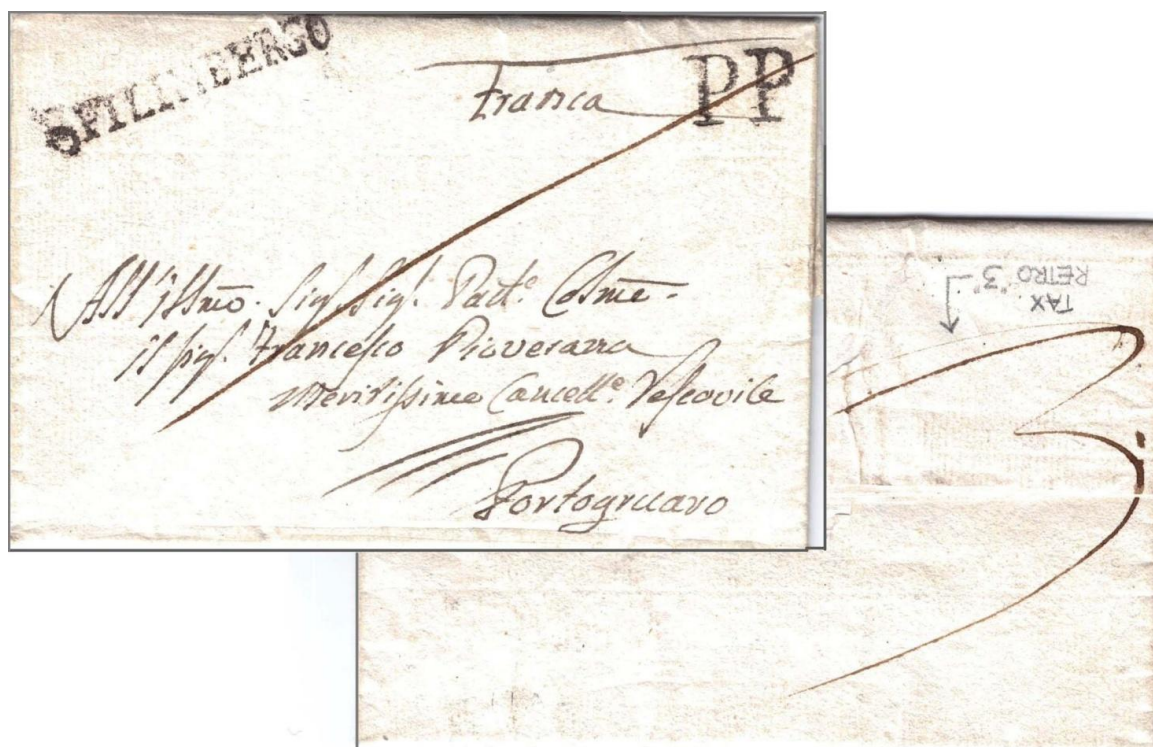 SPILIMBERGO
Franca
PP
All'Illmo. Sigr. Sigr. Pad.e Colmè.
il Sigr. Francesco Pioverana
Meritissimo Cancell.e Vescovile
Portogruaro
TAX
RETRO "3"
3.